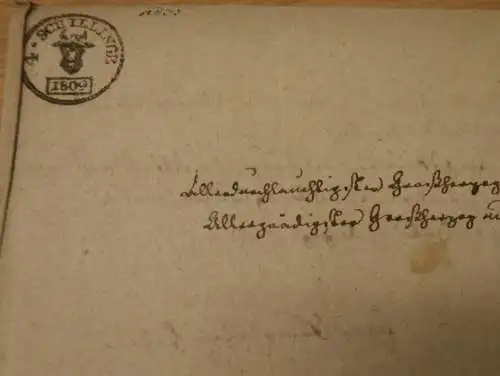 4 · SCHILLINGE
1809
Allerdurchlauchtigster Großherzog
Allergnädigster Großherzog un